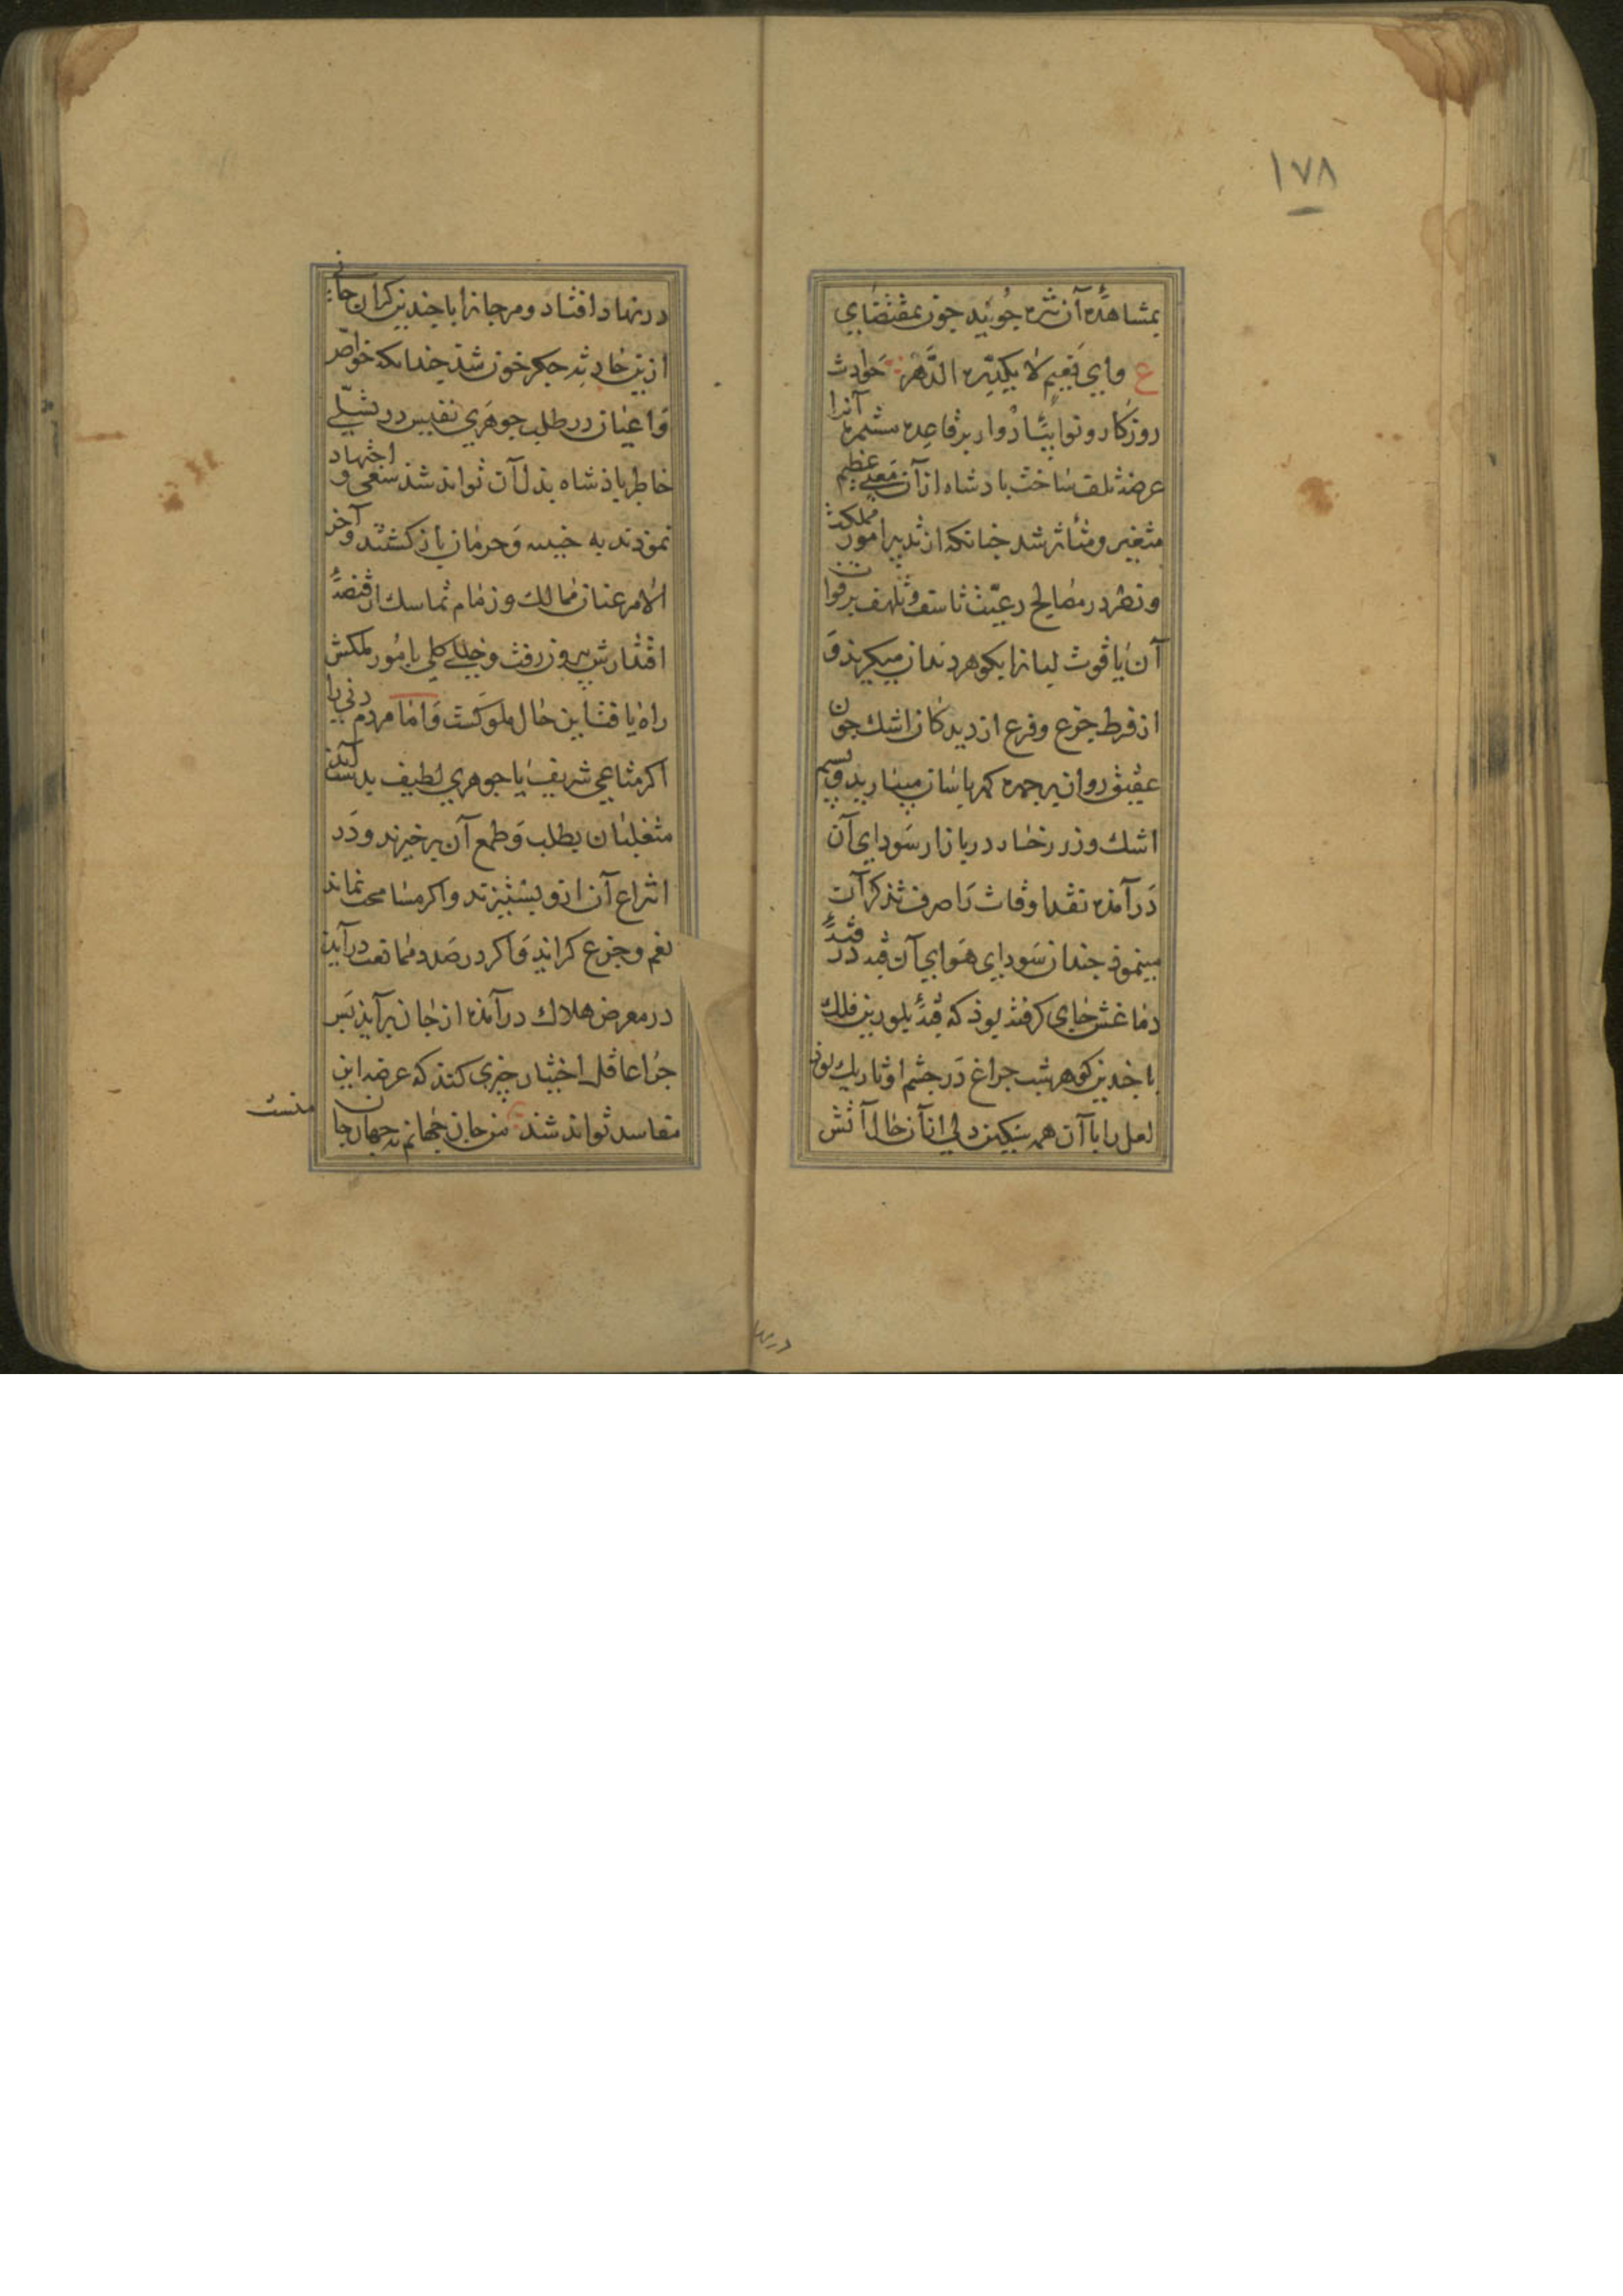 ۱۷۸
بمشاهدهٔ آن نزه جویید چون بمقتضای
ع وای نعیم لا یکدره الدهر حوادث
روزکار و نوایب ادوار بر قاعدهٔ مستمره آنرا
عرضهٔ تلف ساخت بادشاه از آن معنی عظیم
متغیر و متاثر شد جنانکه از تدبیر امور مملکت
و نظر در مصالح رعیت تاسف و تلهف بر فوات
آن یاقوت لبانرا بکوهر دندان میکزید و
از فرط جزع و فزع از دیدکان اشک جون
عقیق روان بر جهره کهرباسان میبارید و بسیم
اشک و زر رخسار در بازار سودای آن
در آمده نقد اوقات را صرف تذکر آن
مینمود جندان سودای هوای آن قبه در
دماغش جای کرفته بود که قبهٔ بلورین فلک
با جندین کوهر شب جراغ در جشم او تاریک بود
لعل را با آن همه سنکین دلی از آن حال آتش
درنها
در نهاد افتاد و مرجانرا با جندین کران جانی
ازین حادثه جکر خون شد جندانکه خواص
و اعیان در طلب جوهری نفیس در تسلی
خاطر باذشاه بدل آن تواند شذ سعی و اجتهاد
نمودند به خیبه و حرمان باز کشتند و آخر
الامر عنان ممالک و زمام تماسک از قبضهٔ
اقتدارش بیرون رفت و خللی کلی بامور ملکش
راه یافت این حال ملوکست و اما مردم دنی با
اکر متاعی شریف یا جوهری لطیف بدست آید
متغلبان بطلب و طمع آن برخیزند و در
انتزاع آن ازو بستیزند و اکر مسامحت نماید
بغم و جزع کراید و اکر در صدد ممانعت درآید
در معرض هلاک درآمده از جان برآید بس
جرا عاقل اختیار جیزی کند که عرضه این
مفاسد تواند شد من جان جهانم نه جهان جان
منست